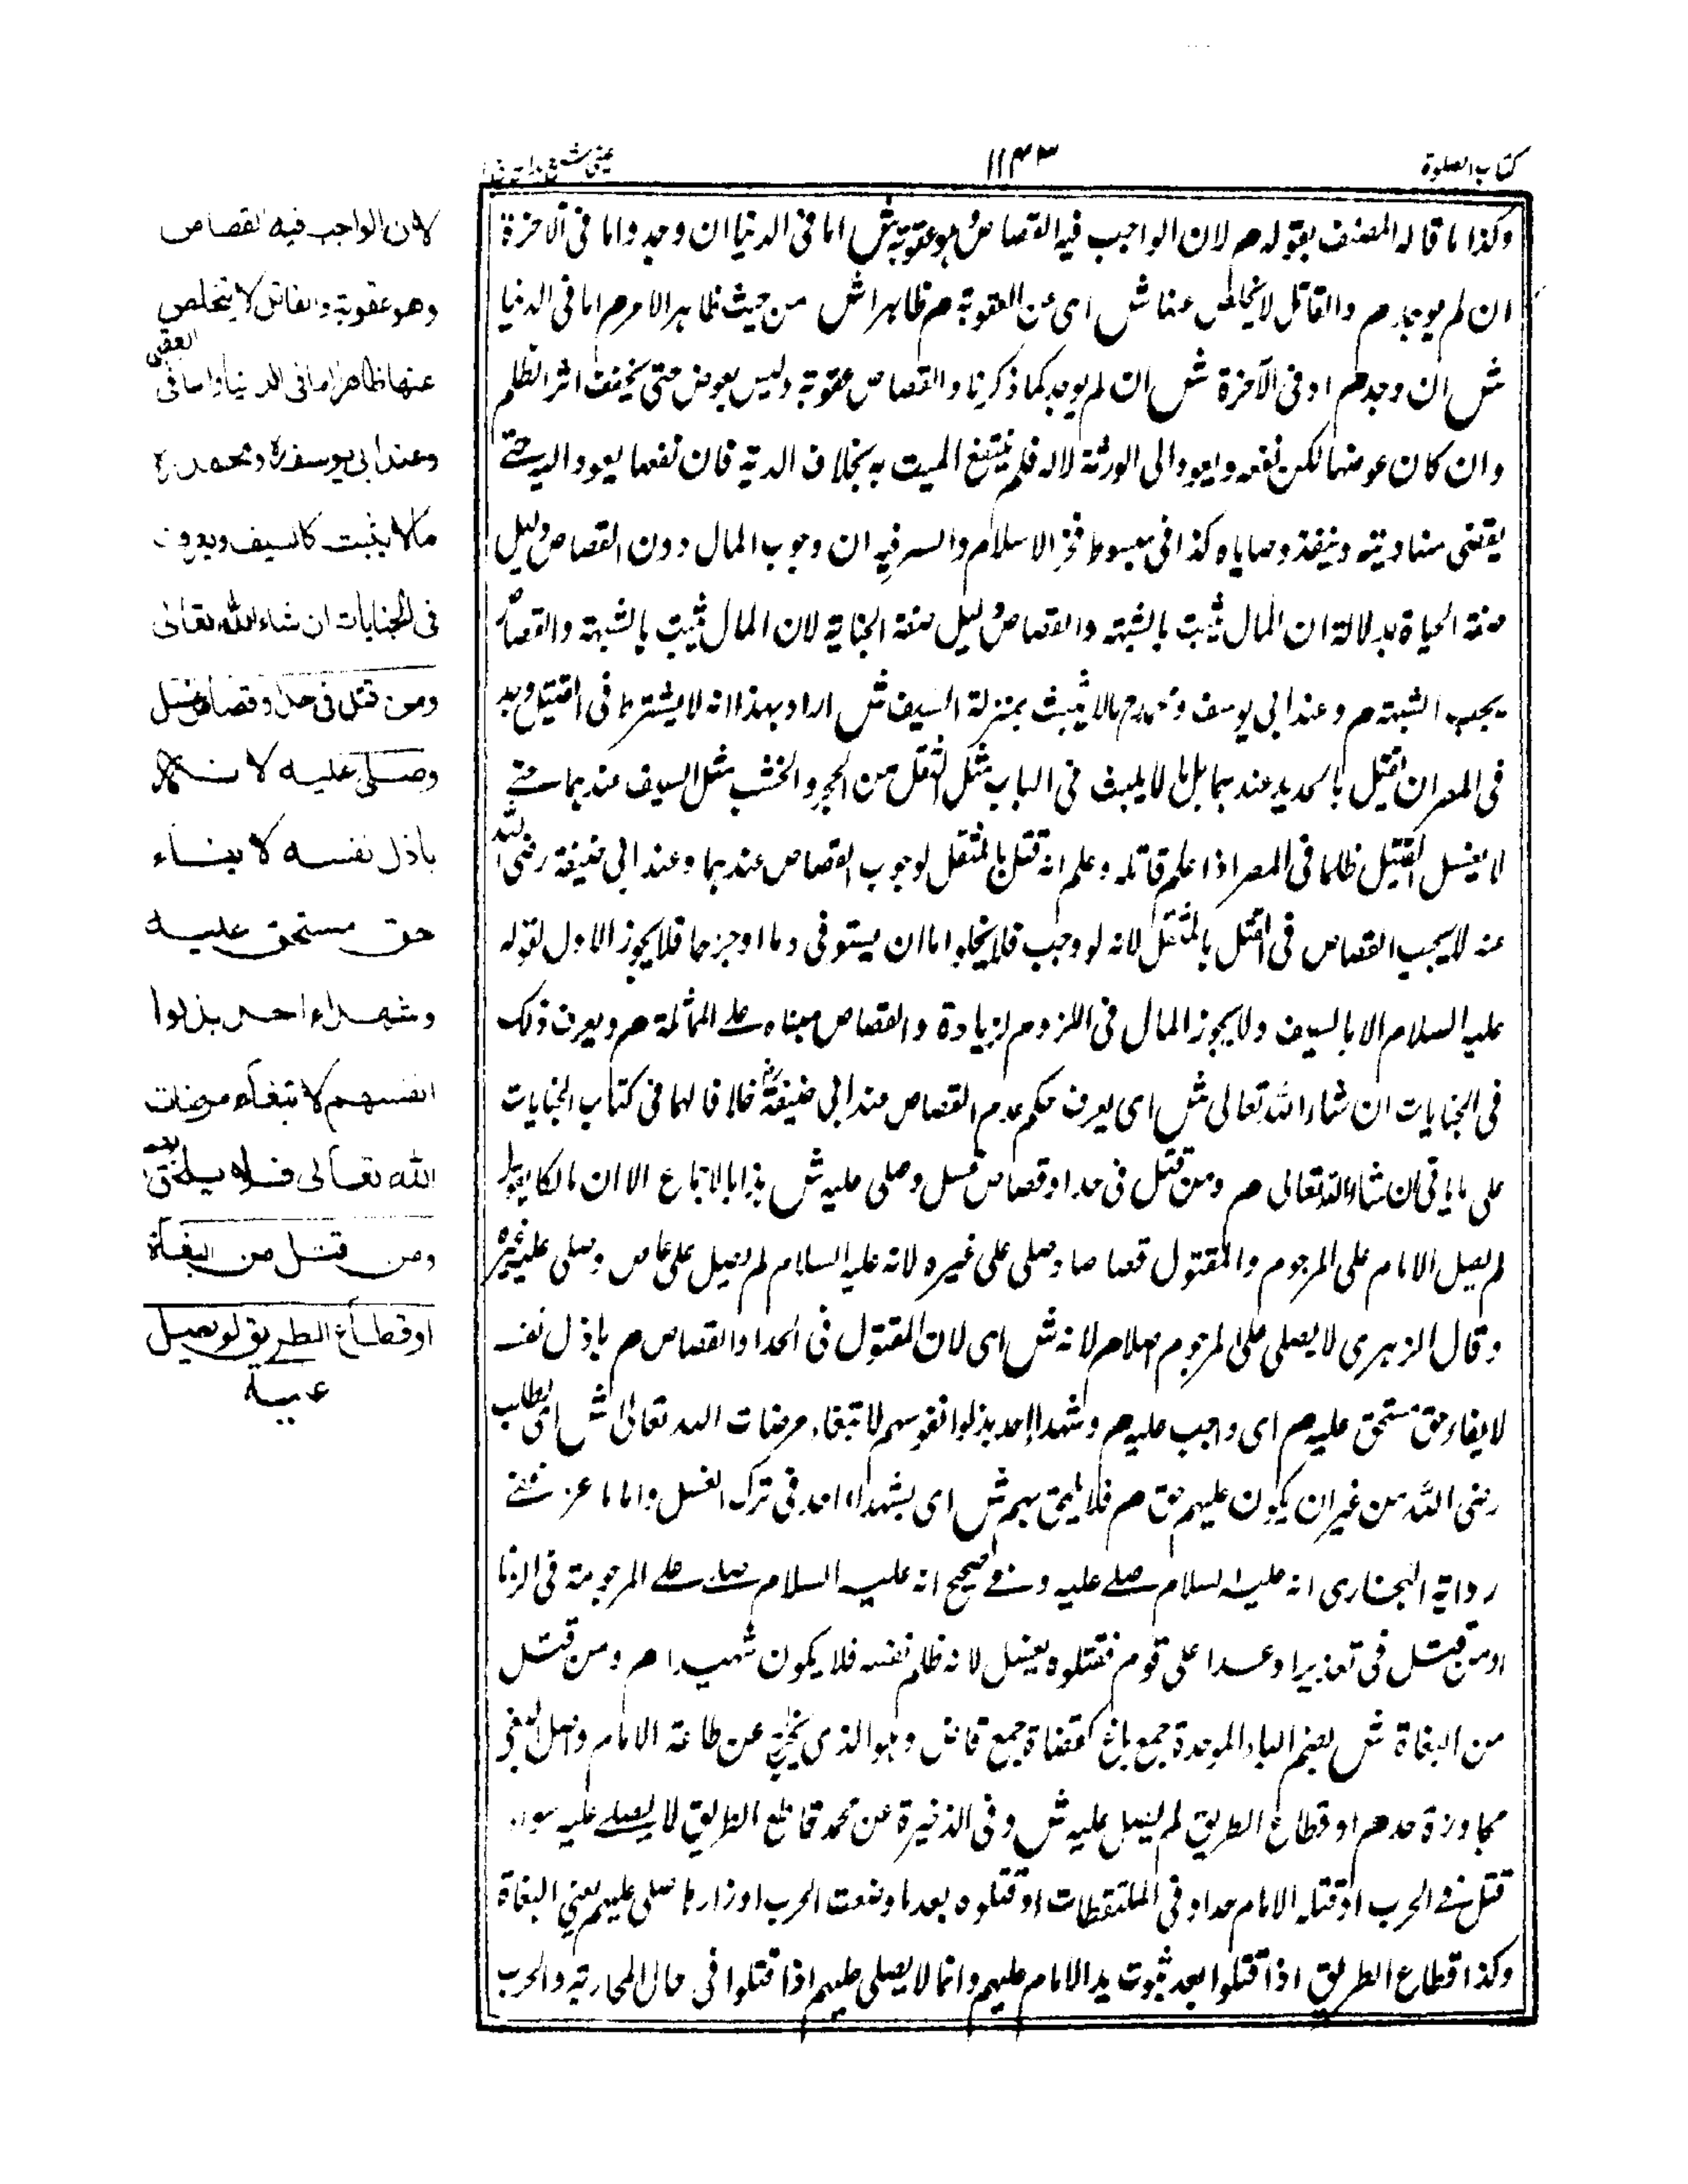 كتاب الصلوة
١١٤٣
عينى شرح هدايه
وكذا ما قاله المصنف بقوله هم لان الواجب فيه القصاص وهو عقوبة ش اما فى الدنيا ان وجد واما فى الآخرة
ان لم يوجد هم والقاتل لا يتخلص عنها ش اى عن العقوبة هم ظاهرا ش من حيث ظاهر الامر هم اما فى الدنيا
ش ان وجد هم او فى الآخرة ش ان لم يوجد كما ذكرنا والقصاص عقوبة وليس بعوض حتى يخفف اثر الظلم
وان كان عوضا لكن نفعه يعود الى الورثة لا له فلم ينتفع الميت به بخلاف الدية فان نفعها يعود اليه حتے
يقضى منها دينه وينفذ وصاياه كذا فى مبسوط فخر الاسلام والسر فيه ان وجوب المال دون القصاص دليل
خفة الجناية بدلالة ان المال يثبت بالشبهة والقصاص دليل خفة الجناية لان المال يثبت بالشبهة والقصاص
يجب الشبهة هم وعند ابى يوسف ومحمد رح ما لا يلبث بمنزلة السيف ش اراد بهذا انه لا يشترط فى القتيل وجد
فى المصر ان قتيل بالحديد عندهما بل ما لا يلبث فى الباب مثل المثقل من الحجر والخشب مثل السيف عندهما حتے
لا يغسل القتيل ظلما فى المصر اذا علم قاتله وعلم انه قتل بالمثقل لوجوب القصاص عندهما وعند ابى حنيفة رضى الله
عنه لا يجب القصاص فى القتل بالمثقل لانه لو وجب فلا يخلوا اما ان يستوفى دما او جزما فلا يجوز الاول لقوله
عليه السلام الا بالسيف ولا يجوز المال فى اللزوم الزيادة والقصاص مبناه علے المماثلة هم ويعرف ذلك
فى الجنايات ان شاء الله تعالى ش اى يعرف حكم عدم القصاص عند ابى حنيفة رح خلافا لهما فى كتاب الجنايات
على ما ياتى ان شاء الله تعالى هم ومن قتل فى حد او قصاص غسل وصلى عليه ش هذا بالاجماع الا ان مالكا يقول
لم يصل الامام على المرجوم والمقتول قصاصا وصلى على غيره لانه عليه السلام لم يصل على ماعز وصلى عليه غيره
وقال الزهرى لا يصلى على المرجوم اصلا هم لانه ش اى لان المقتول فى الحد او القصاص هم باذل نفسه
لايفاء حق مستحق عليه هم اى واجب عليه هم وشهداء احد بذلوا نفوسهم لابتغاء مرضات الله تعالى ش اى لطلب
رضى الله من غير ان يكون عليهم حق هم فلا يلحق بهم ش اى بشهداء احد فى ترك الغسل واما ماعز ففے
رواية البخارى انه عليه السلام صلے عليه وفے صحيح انه عليه السلام صلے علے المرجومة فى الزنا
ومن قتل فى تعزير او عدا على قوم فقتلوه يغسل لانه ظلم نفسه فلا يكون شهيدا هم ومن قتل
من البغاة ش بضم الباء الموحدة جمع باغ كقضاة جمع قاض وهو الذى يخرج عن طاعة الامام واصل البغى
مجاوزة حد هم او قطاع الطريق لم يصل عليه ش وفى الذخيرة عن محمد قاطع الطريق لا يصلے عليه سواء
قتل فے الحرب او قتله الامام حدا وفى الملتقطات او قتلوه بعد ما وضعت الحرب اوزارها صلى عليهم يعنى البغاة
وكذا قطاع الطريق اذا قتلوا بعد ثبوت يد الامام عليهم وانما لا يصلى عليهم اذا قتلوا فى حال المحاربة والحرب
لان الواجب فيه القصاص
وهو عقوبة والقاتل لا يتخلص
عنها ظاهرا اما فى الدنيا واما فى العقبى
وعند ابى يوسف ره ومحمد ره
مالا يلبث كالسيف ويعرف
فى الجنايات ان شاء الله تعالى
ومن قتل فى حد او قصاص غسل
وصلى عليه لانه
باذل نفسه لايفاء
حق مستحق عليه
وشهداء احد بذلوا
انفسهم لابتغاء مرضات
الله تعالى فلا يلحق بهم
ومن قتل من البغاة
او قطاع الطريق لم يصل
عليه